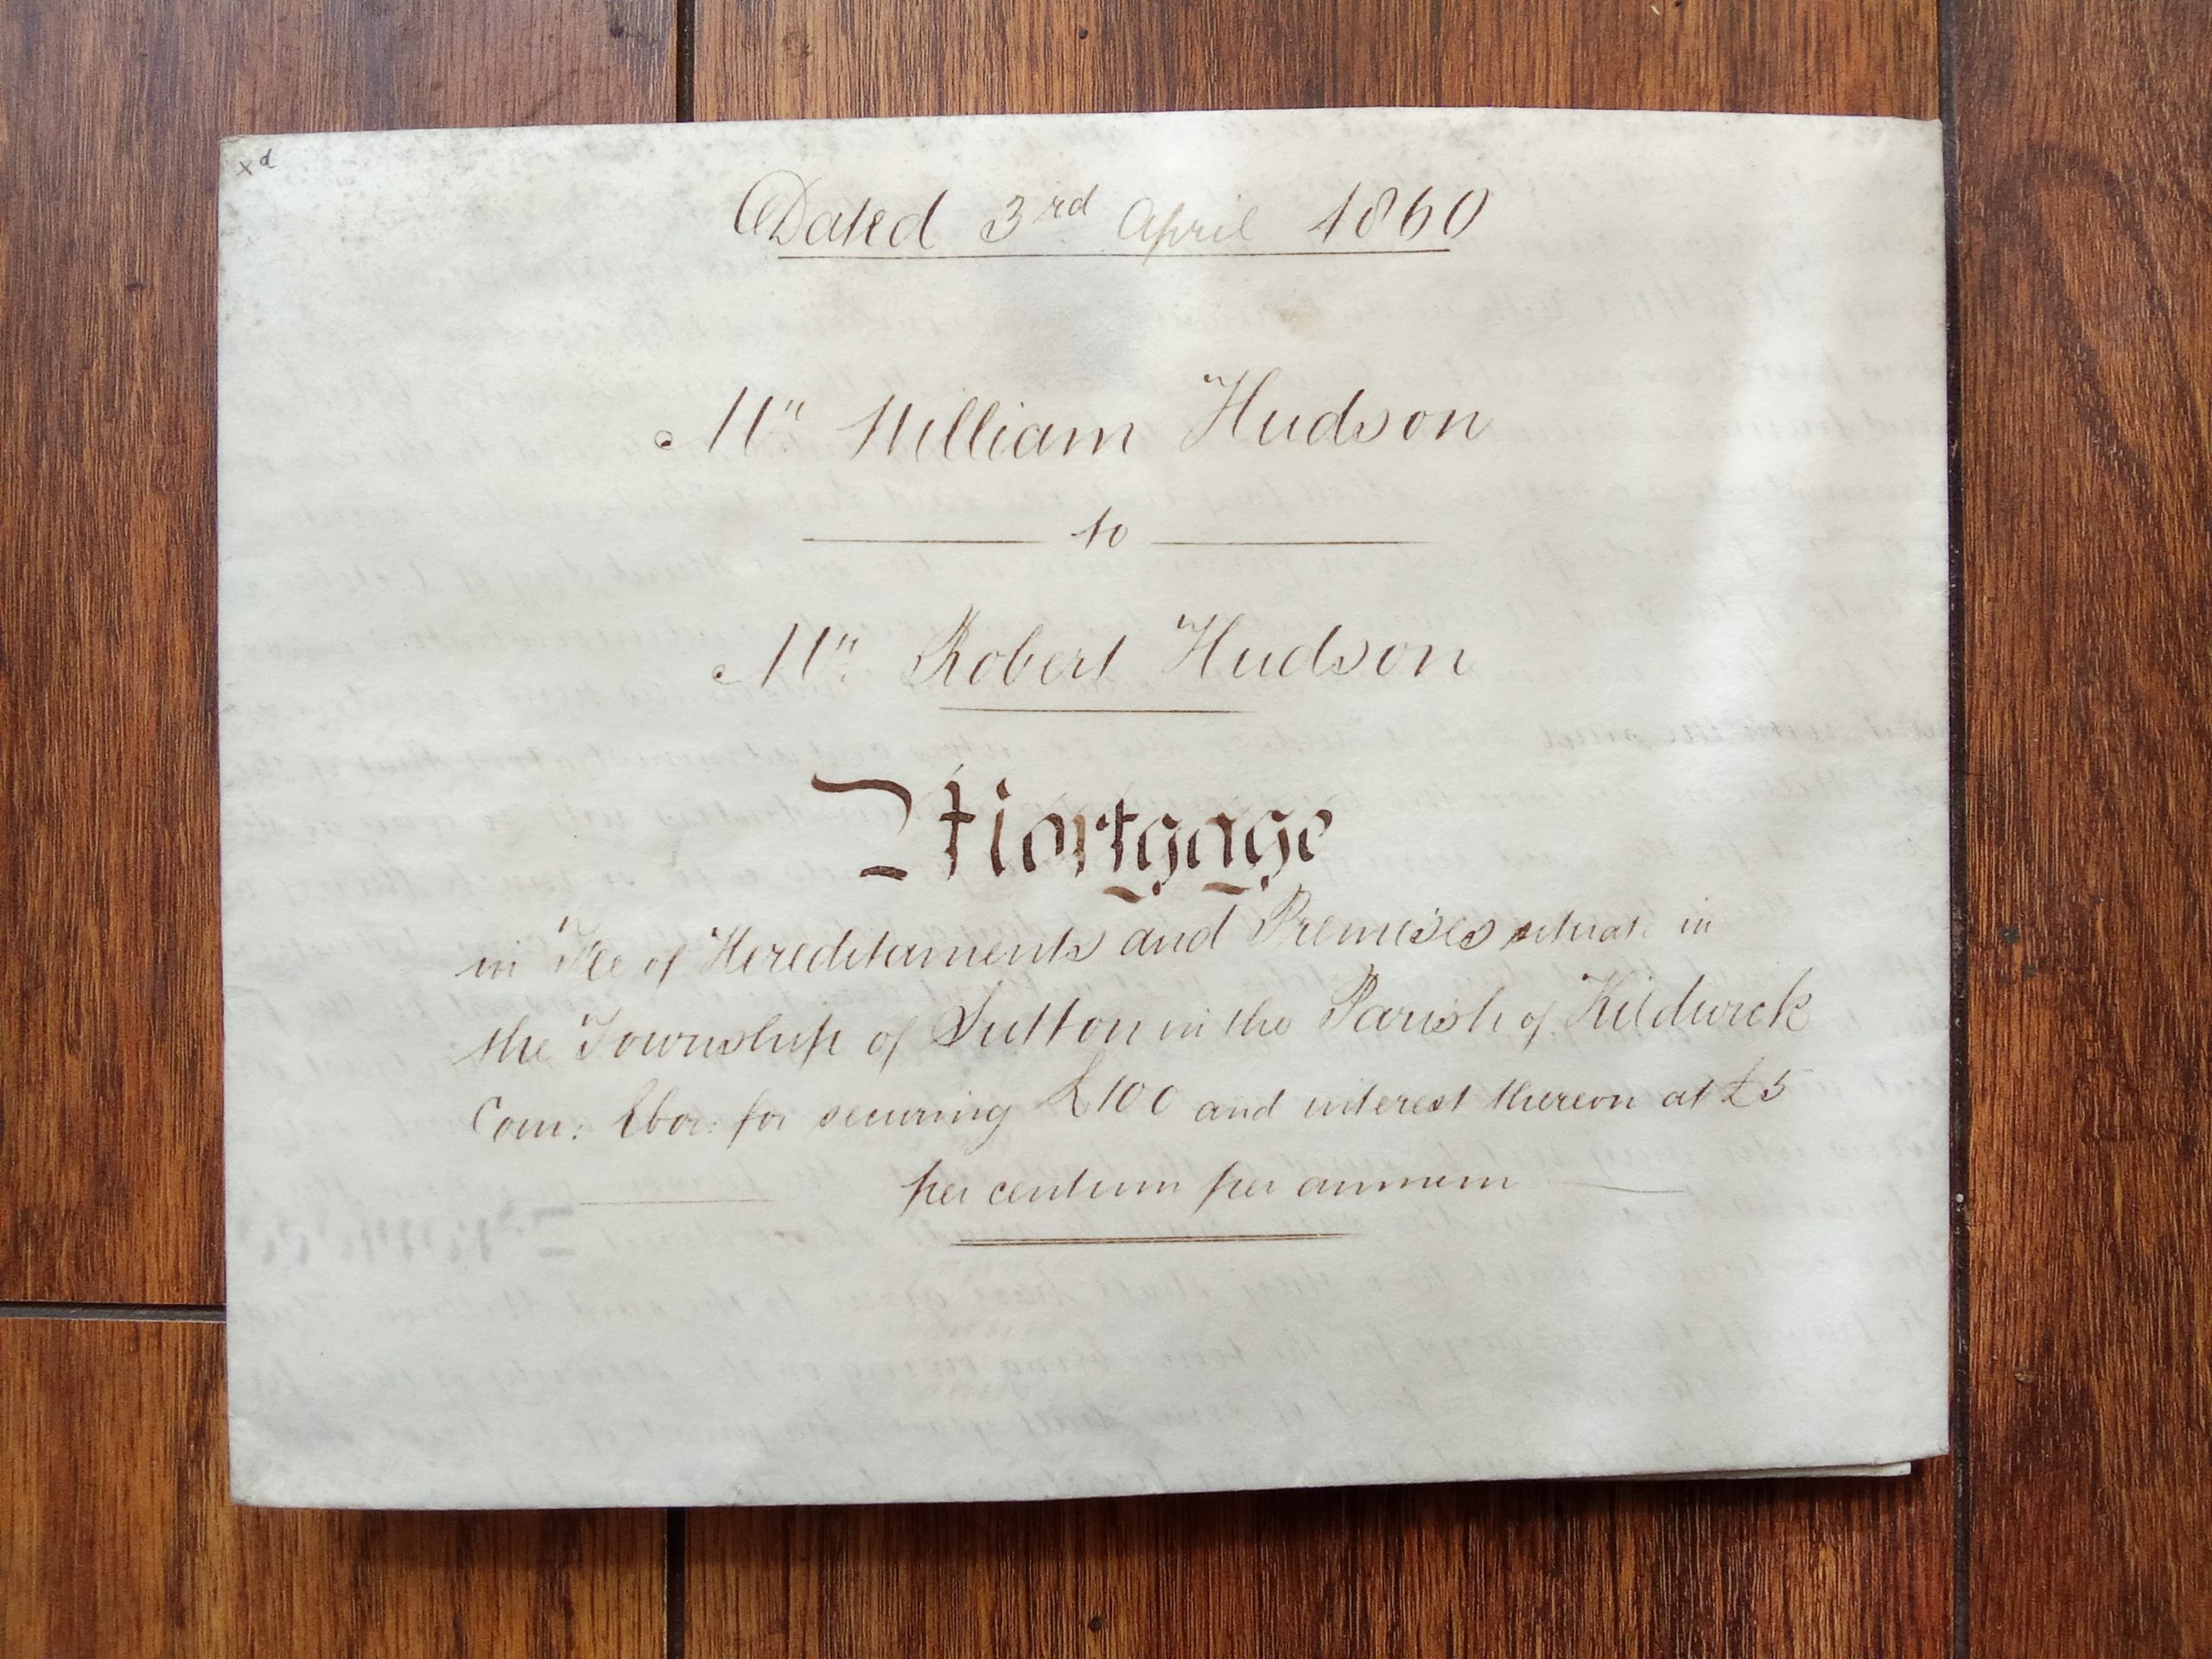 xd
Dated 3rd April 1860
Mr. William Hudson
to
Mr. Robert Hudson
Mortgage
in Fee of Hereditaments and Premises situate in
the Township of Sutton in the Parish of Kildwick
Com: Ebor: for securing £100 and interest thereon at £5
per centum per annum